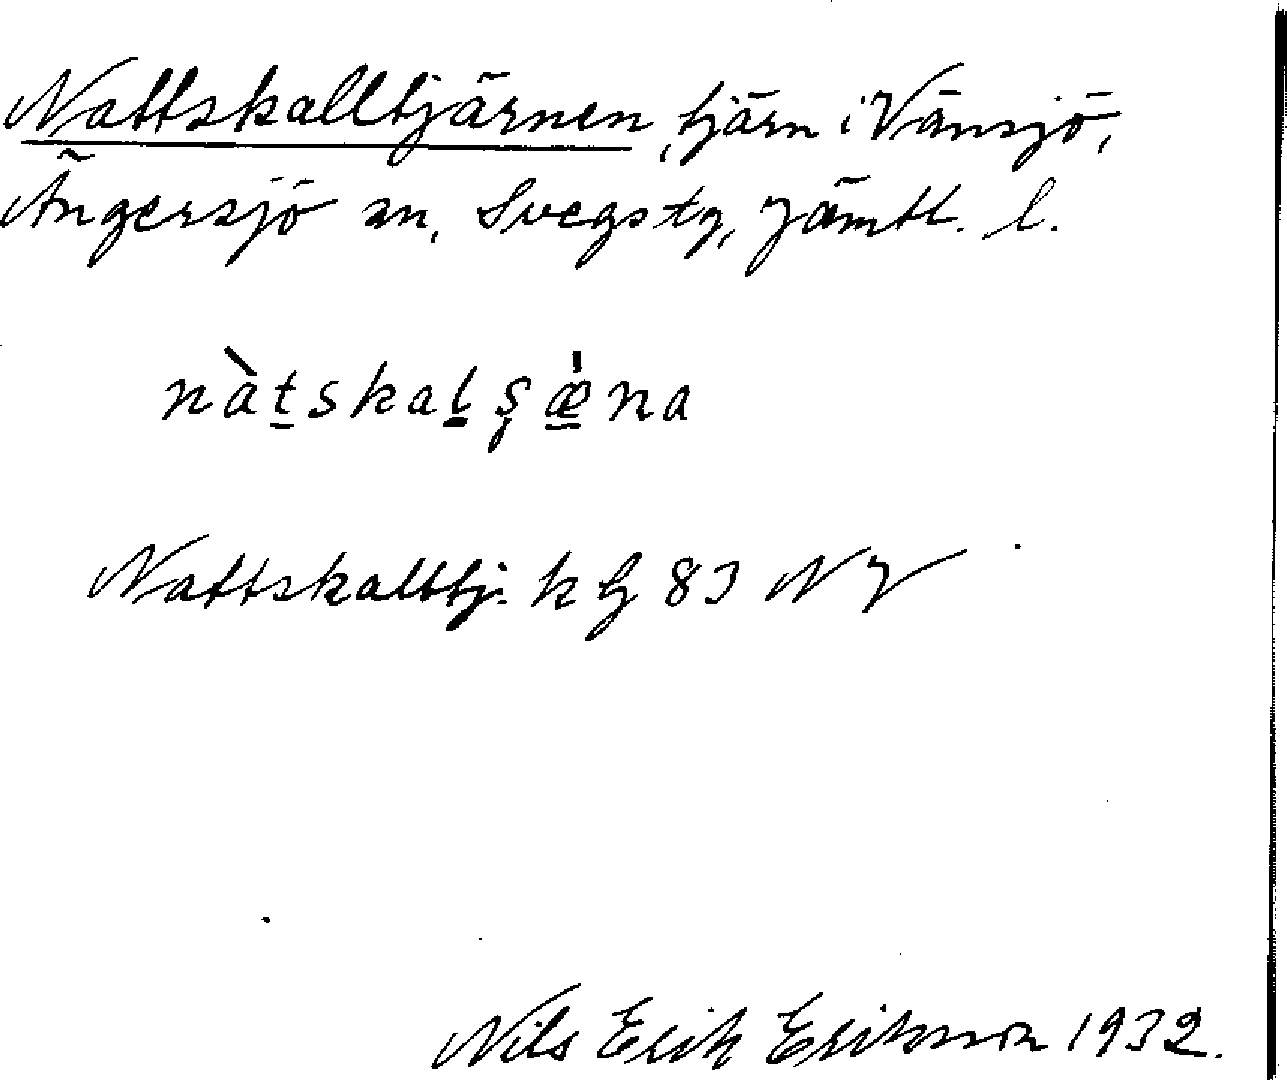 Nattskalltjärnen, tjärn i Vänsjö,
Ängersjö sn, Svegs tg, Jämtl. l.
nàt̲skal̲ş æ̲̀na
Nattskalltj. k bl 83 NV
Nils Erik Eriksson 1932.